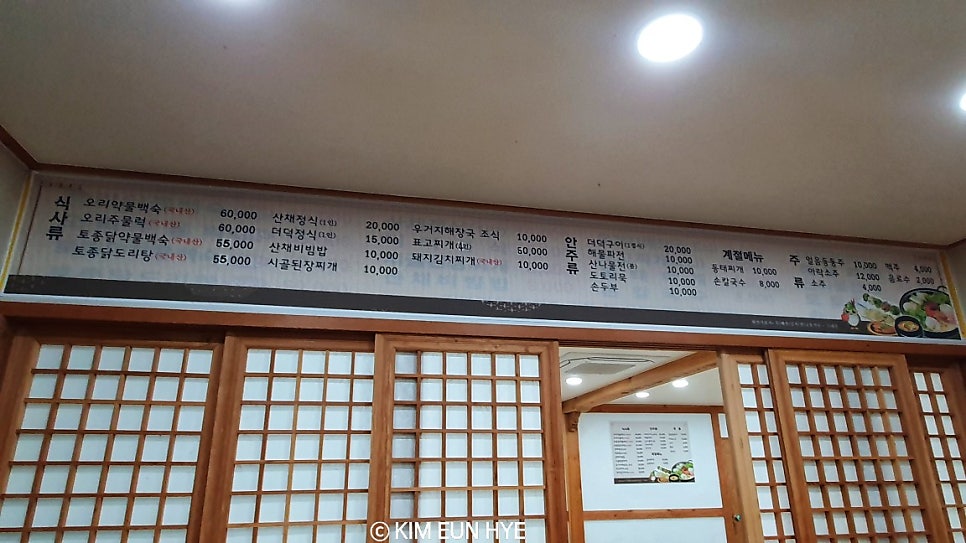 식사류
오리약물백숙(국내산) 60,000
오리주물럭(국내산) 60,000
토종닭약물백숙(국내산) 55,000
토종닭도리탕(국내산) 55,000
산채정식(1인) 20,000
더덕정식(1인) 15,000
산채비빔밥 10,000
시골된장찌개 10,000
우거지해장국 조식 10,000
표고찌개
돼지김치찌개(국내산) 10,000
안주류
더덕구이 20,000
해물파전 10,000
산나물전 10,000
도토리묵 10,000
손두부 10,000
계절메뉴
동태찌개 10,000
손칼국수 8,000
주류
얼음동동주 10,000
아락소주 12,000
소주 4,000
맥주 4,000
음료수 2,000
© KIM EUN HYE